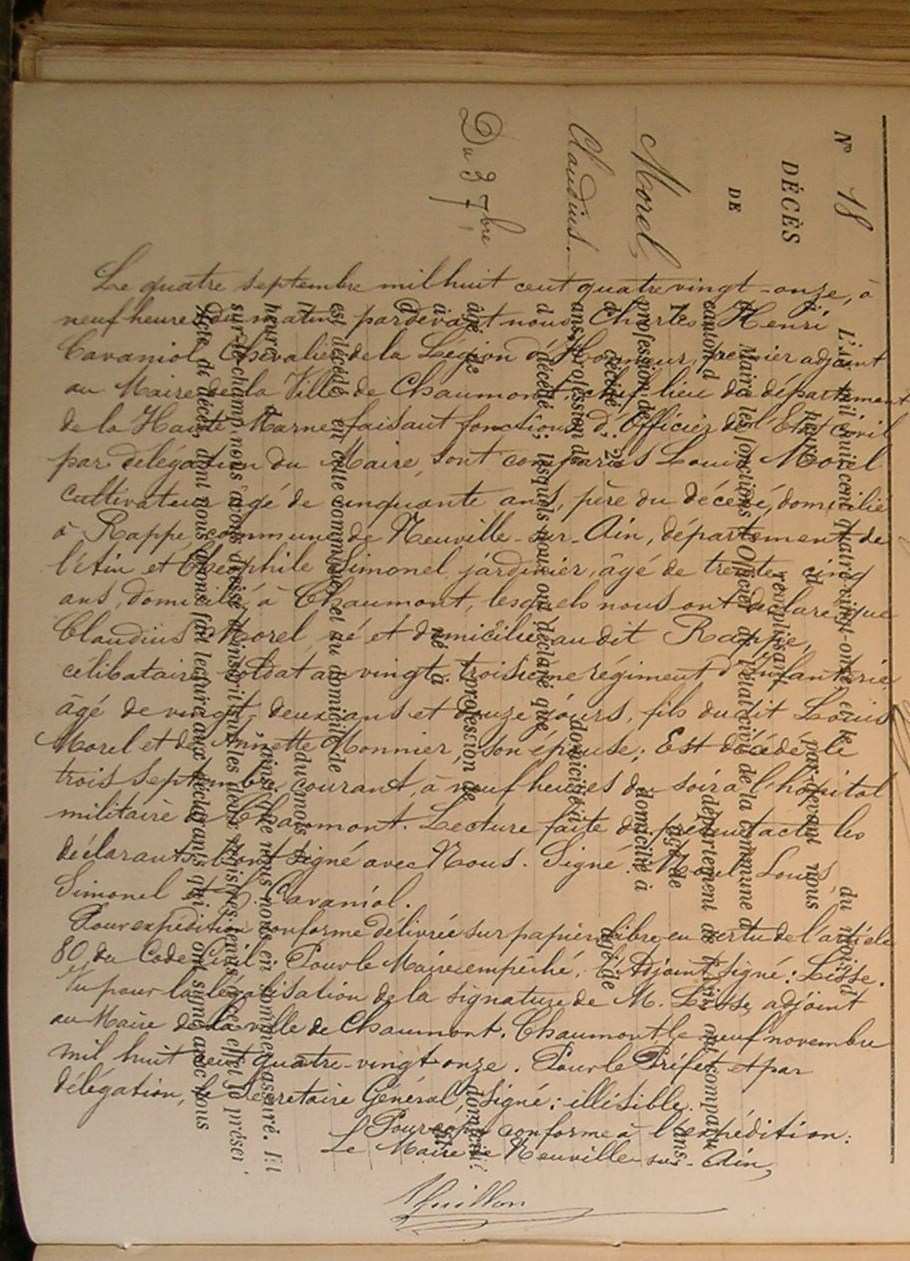 N° 18
DÉCÈS
DE
Morel,
Claudius.
Du 3 7bre
Le quatre septembre mil huit cent quatre vingt-onze, à
neuf heures du matin, pardevant nous Charles Henri
Cavaniol, Chevalier de la Légion d'Honneur, premier adjoint
au Maire de la Ville de Chaumont, chef-lieu du département
de la Haute Marne faisant fonctions d'Officier de l'Etat civil
par délégation du Maire, sont comparus Louis Morel
cultivateur âgé de cinquante ans, père du décédé, domicilié
à Rappe, commune de Neuville-sur-Ain, département de
l'Ain et Théophile Simonel, jardinier, âgé de trente cinq
ans, domicilié à Chaumont, lesquels nous ont déclaré que
Claudius Morel né et domicilié au dit Rappe,
célibataire, soldat au vingt-troisième régiment d'Infanterie
âgé de vingt deux ans et douze jours, fils du dit Louis
Morel et de Annette Monnier, son épouse; Est décédé le
trois septembre courant, à neuf heures du soir à l'hôpital
militaire à Chaumont. Lecture faite du présent acte les
déclarants l'ont signé avec Nous. Signé: Morel Louis,
Simonel et Cavaniol.
Pour expédition conforme délivrée sur papier libre en vertu de l'article
80 du Code Civil. Pour le Maire empêché, L'Adjoint signé: Lisse.
Vu pour la légalisation de la signature de M. Lisse, adjoint
au Maire de la ville de Chaumont. Chaumont le neuf novembre
mil huit cent quatre-vingt onze. Pour le Préfet et par
délégation, le Secrétaire Général, Signé: illisible.
Pour copie conforme à l'expédition:
Le Maire de Neuville-sur-Ain,
L'an mil huit cent quatre-vingt-onze et le du mois d
à heure par-devant nous
Maire les fonctions d'Officier de l'état civil de la commune d
canton d département de l'Ain, ont comparu
1° âgé de ans
profession de domicilié à
d décédé 2° âgé de
ans, profession de domicilié à
d décédé; lesquels nous ont déclaré que
âgé de profession de domicilié
à né à
d
est décédé en cette commune et au domicile de
l du mois
heure ainsi que nous nous en sommes assuré. Et
sur-le-champ nous avons dressé et inscrit sur les deux registres à ce effet le présent
Acte de décès, dont nous avons fait lecture aux déclarants qui ont signé avec nous